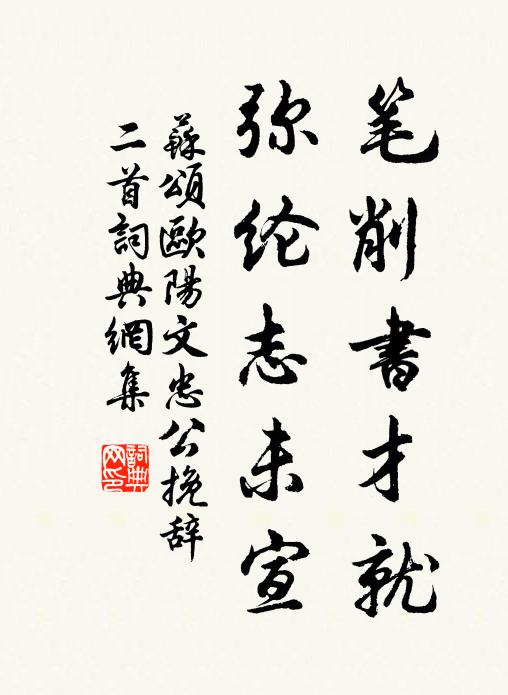 笔削書才就
弥纶志未宣
蘇頌歐陽文忠公挽辞
二首詞典網集
詞典网印